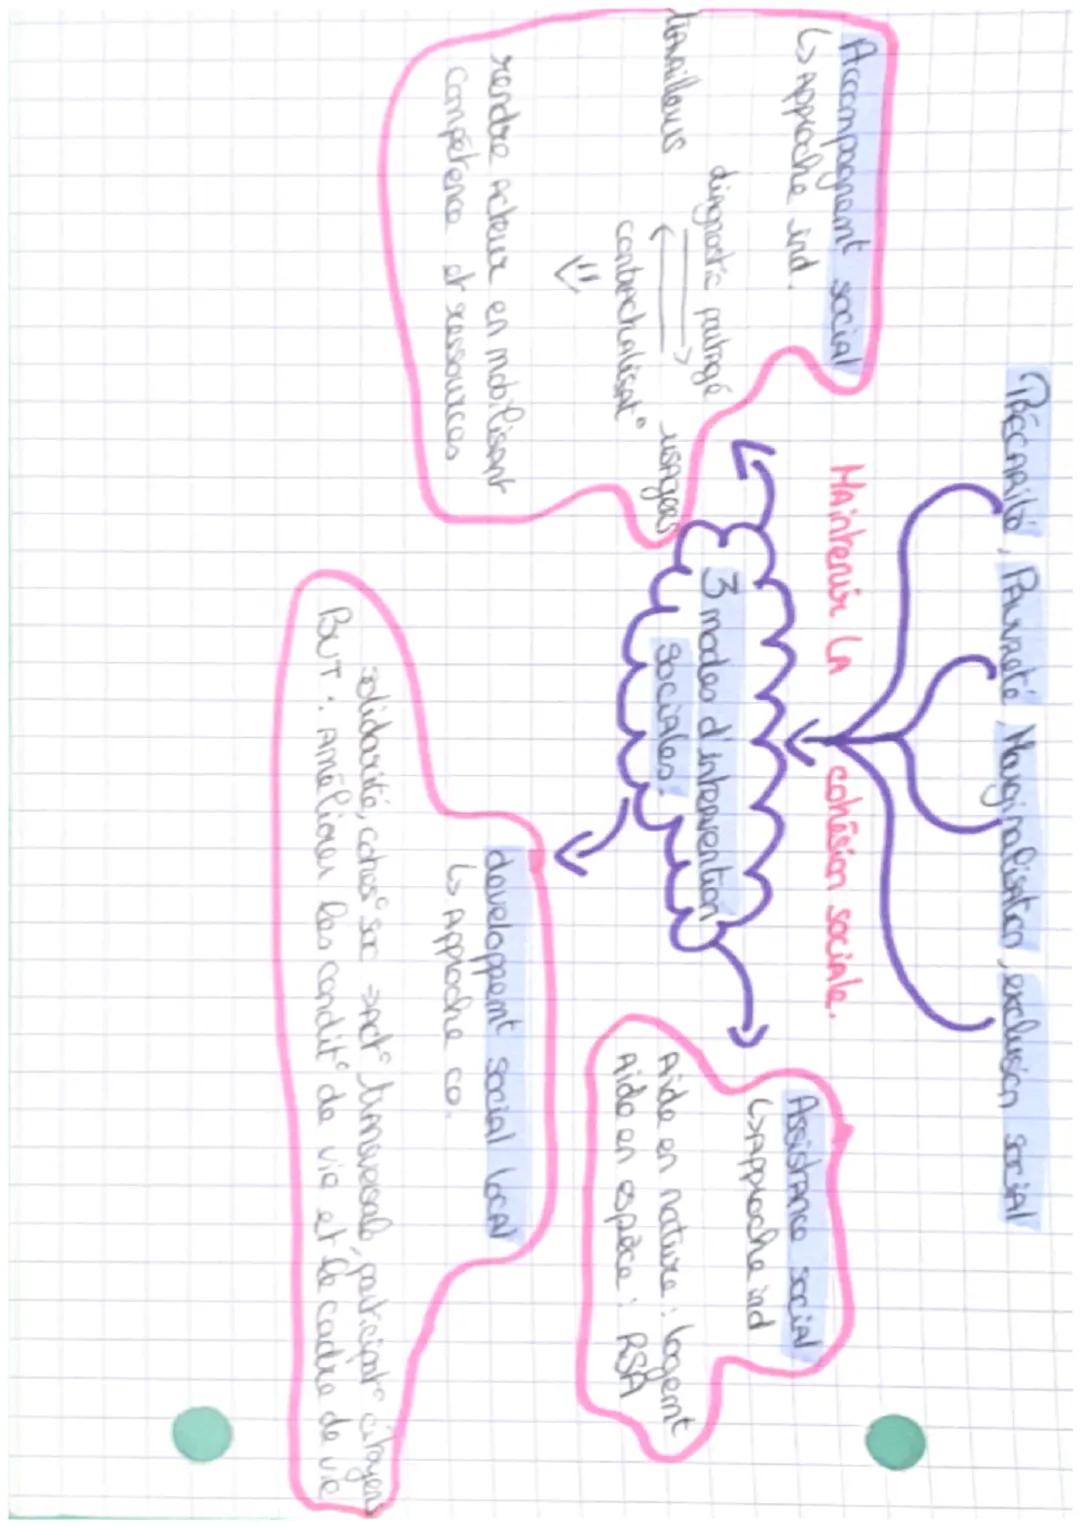 PRÉCARité, PAUVReté Marginalisation, exclusion social
MAintenir LA cohésion sociale.
Accompagnemt social
↳ Approche ind.
diagnostic partagé
travailleurs ⇄ usagers
contractualisat°
rendre acteur en mobilisant
compétence et ressources
3 modes d'intervention
sociales.
Assistance social
↳ approche ind
Aide en nature : logemt
Aide en espèce : RSA
developpemt social local
↳ Approche co.
solidarité, cohes° soc => act° transversale, participat° citoyens
BUT : Améliorer les condit° de vie et le cadre de vie